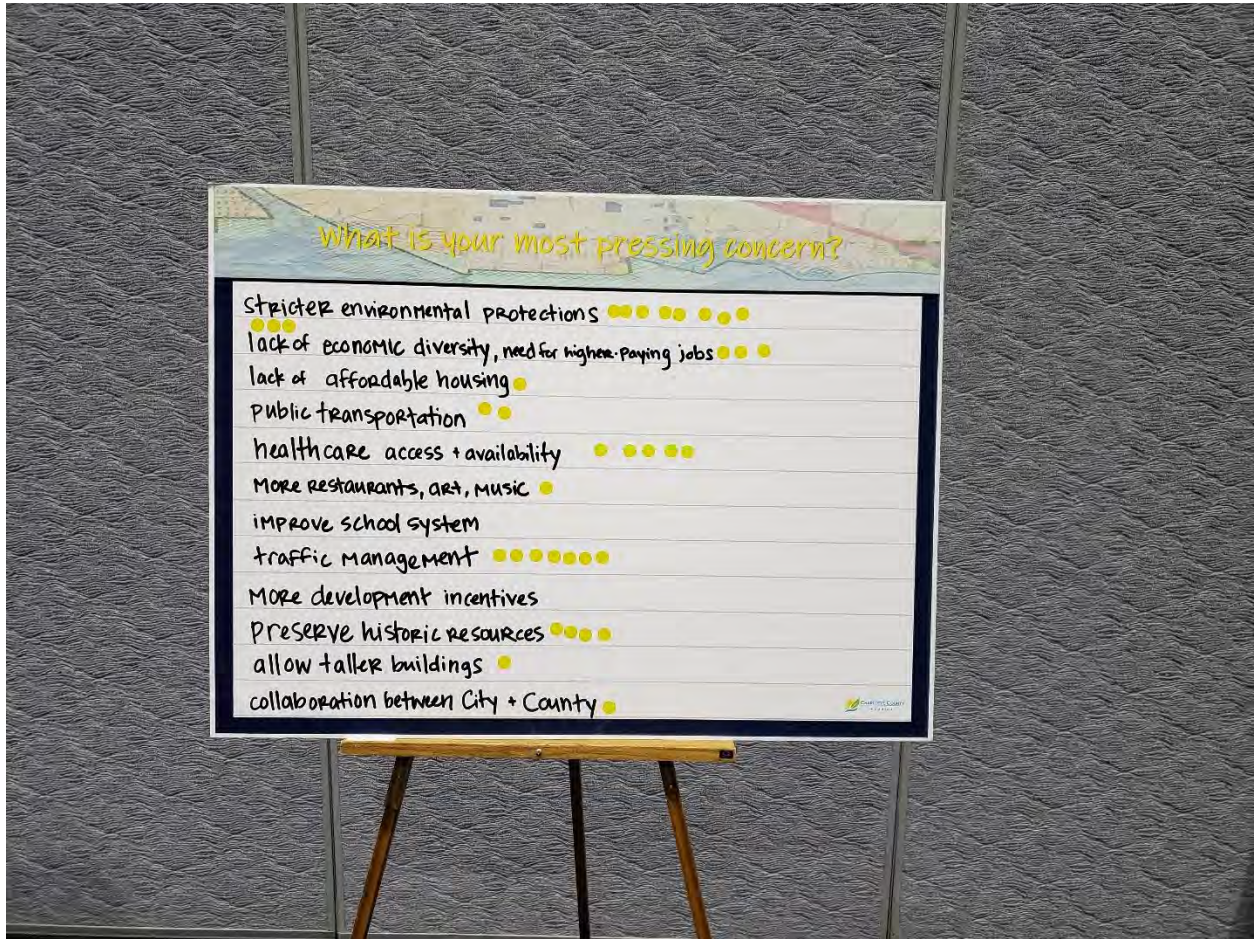 What is your most pressing concern?
stricter environmental protections
lack of economic diversity, need for higher-paying jobs
lack of affordable housing
public transportation
healthcare access + availability
more restaurants, art, music
improve school system
traffic management
more development incentives
preserve historic resources
allow taller buildings
collaboration between City + County